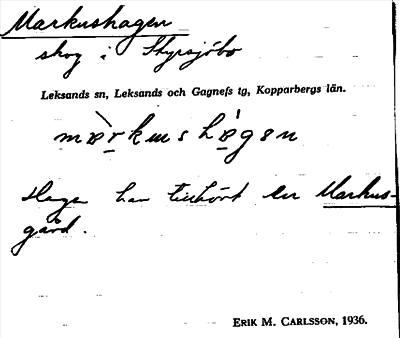 Markushagen
skog i Styrsjöbo
Leksands sn, Leksands och Gagnefs tg, Kopparbergs län.
màrkushágen
Hagen har tillhört en Markus-
gård.
ERIK M. CARLSSON, 1936.